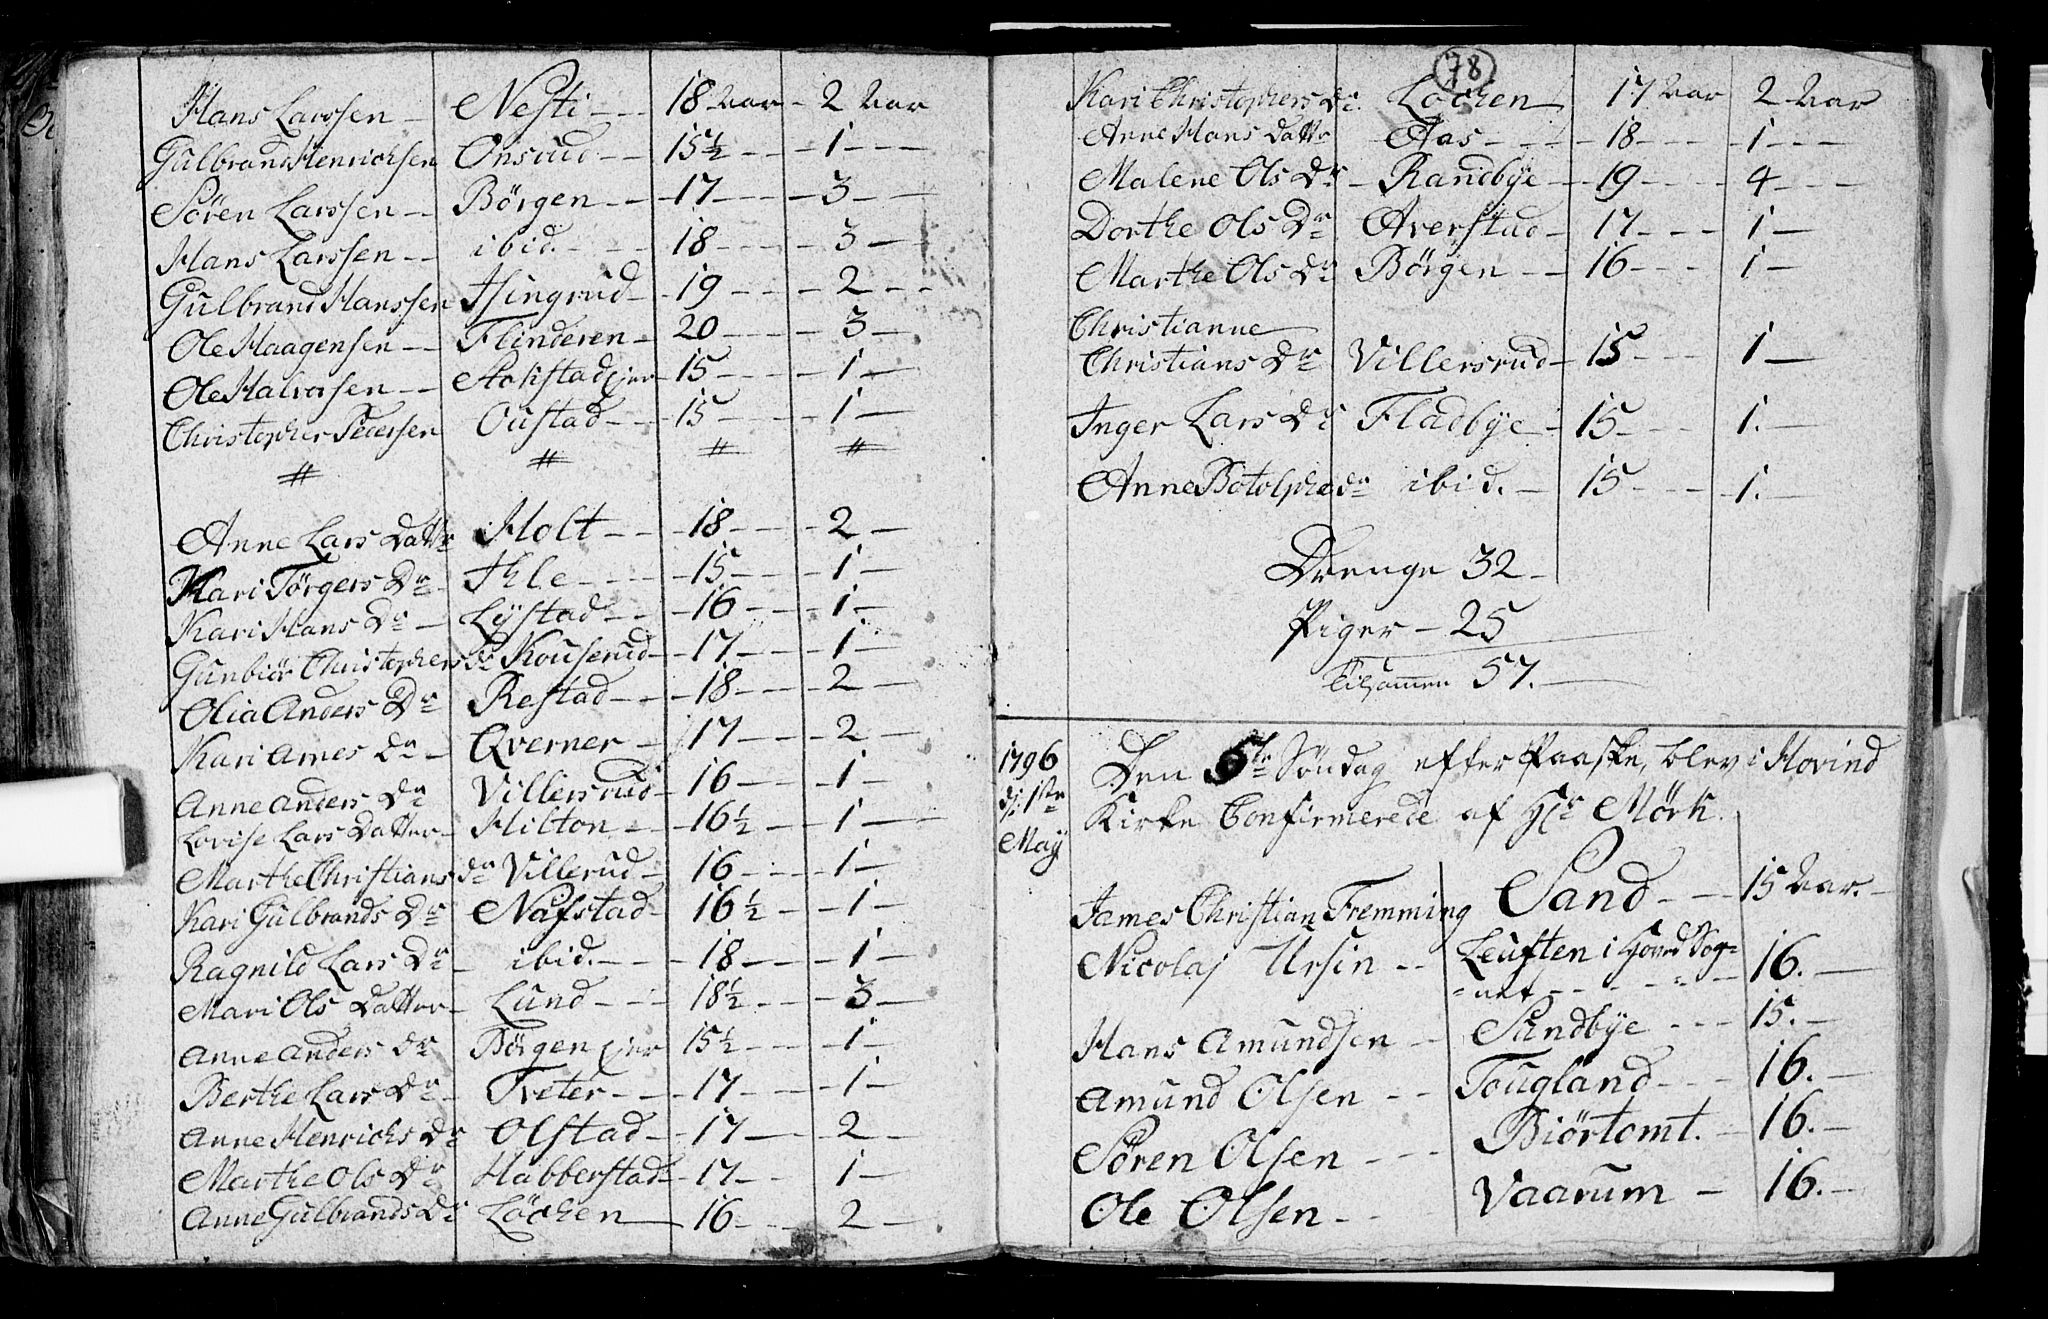 Hans Larssen - Nesti - - 18 Aar - 2 Aar
Gulbrand Henrichsen Onsrud - - 15½ - - - 1 - - -
Sören Larssen - - Börgen - - - 17 - - - 3 - -
Hans Larssen - - ibid. - - - 18 - - - 3 - -
Gulbrand Hanssen - 19 - - - 2 - - -
Ole Haagensen - - Flinderen - 20 - - - 3 -
Ole Halvorsen - - 15 - - - 1 -
Christopher Pedersen Oustad - - 15 - - - 1 -
# # # #
Anne Lars Dattr Holt - - 18 - - - 2 -
Kari Törgers Dr - Ihle - - - 15 - - - 1 -
Kari Hans Dr - Lystad - - - 16 - - - 1 -
Gunbiör Christophers dr Kouserud - 17 - - - 1 -
Olia Anders Dr Restad - - - 18 - - - 2 -
Kari Arnes dr - Qverner - 17 - - - 2 -
Anne Anders Dr Villersrud - 16 - - - 1 -
Lovise Lars Datter - Hilton - - 16½ - - - 1 -
Marthe Christians dr Villerud - 16 - - - 1 -
Kari Gulbrands Dr Nafstad - 16½ - - 1 -
Ragnild Lars Dr - ibid. - - - 18 - - - 1 -
Mari Ols Datter - Lund - - - 18½ - - - 3 -
Anne Anders dr Börgen ejer 15½ - - - 1 -
Berthe Lars Dr - Tveter - - - 17 - - - 1 -
Anne Henrichs Dr Olstad - - 17 - - - 2 -
Marthe Ols Dr Habberstad - 17 - - 1 -
Anne Gulbrands Dr Löchen - 16 - - - 2 -
78
Kari Christophers Dr. Löchen 17 Aar 2 Aar
Anne Hans Dattr Aas - - - - 18 - - - 1 - - -
Malene Ols Dr - Randbye - 19 - - - 4 - - -
Dorthe Ols Dr Averstad - 17 - - - 1 -
Marthe Ols Dr Börgen - - 16 - - - 1 -
Christianne
Christians Dr Villersrud - 15 - - - 1 -
Inger Lars Dr Fladbye - 15 - - - 1. -
Anne Botolphs dr ibid. - 15 - - - 1. -
Drenge 32 -
Piger - 25
Tilsammen 57. -
1796 Den 5te Söndag efter Paaske, blev i Hovind
d: 1ste Kirke Confirmerede af Hr Mörk.
May
James Christian Fremming Sand - - 15 Aar. -
Nicolaj Ursin - - Leuften i Hoved Sog=
=net - - - - 16. -
Hans Amundsen - - Sundbye - - - 15. -
Amund Olsen - - Tougland - - - 16. -
Sören Olsen - - - Biörtomt. - 16. -
Ole Olsen - - Vaarum - 16. -